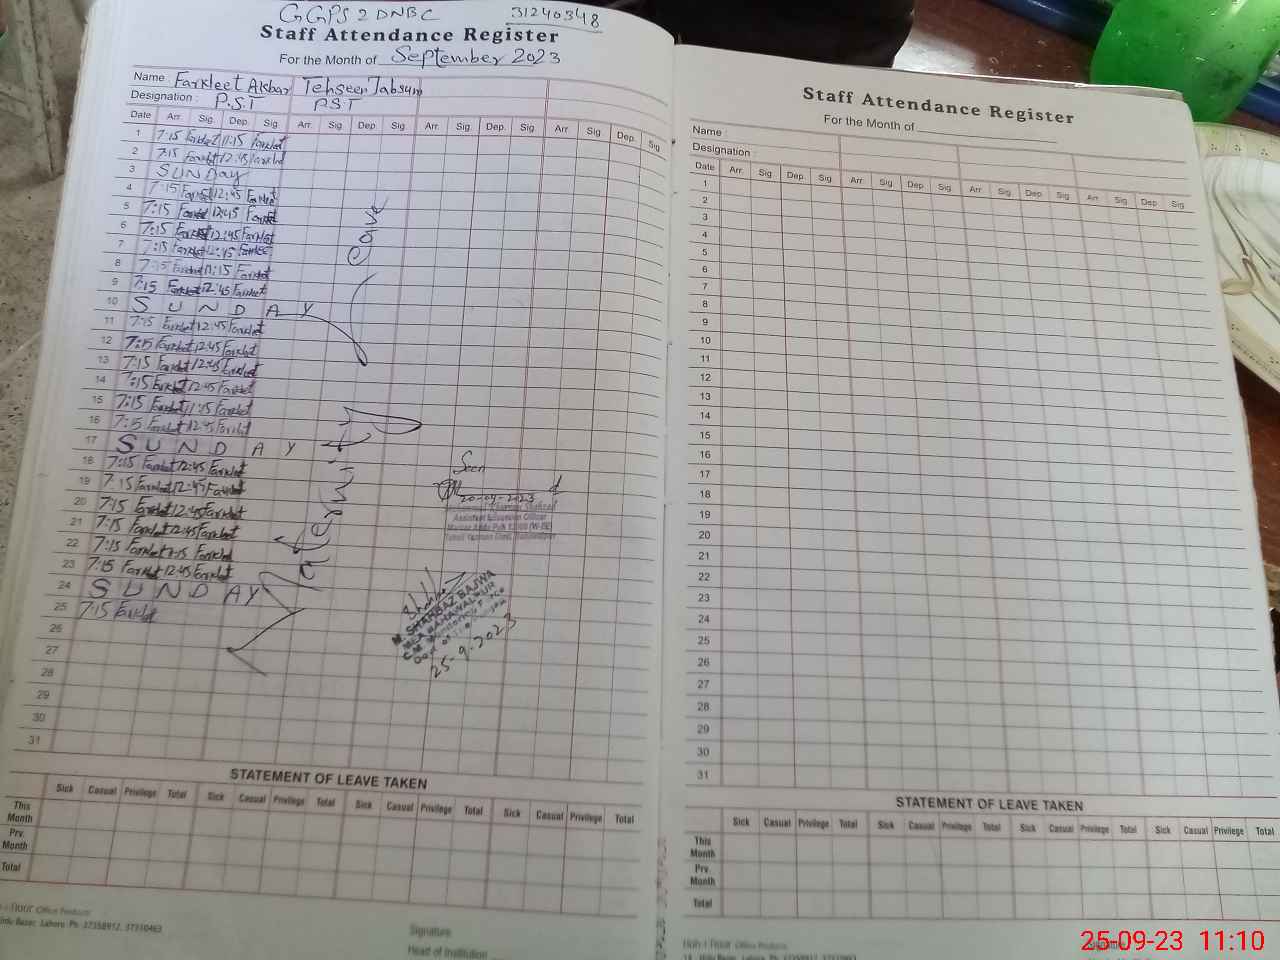 GGPS 2 DNBC 31240348
Staff Attendance Register
For the Month of September 2023
Name : Farkleet Akbar Tehseen Tabsum
Designation : P.S.T P.S.T
Date Arr. Sig. Dep. Sig Arr. Sig Dep. Sig Arr. Sig. Dep. Sig Arr. Sig. Dep. Sig
1 7:15 Farkleet 11:15 Farkleet
2 7:15 Farkleet 12:45 Farkleet
3 SUNDAY
4 7:15 Farkleet 12:45 Farkleet
5 7:15 Farkleet 12:45 Farkleet
6 7:15 Farkleet 12:45 Farkleet
7 7:15 Farkleet 12:45 Farkleet
8 7:15 Farkleet 11:15 Farkleet
9 7:15 Farkleet 12:45 Farkleet
10 SUNDAY
11 7:15 Farkleet 12:45 Farkleet
12 7:15 Farkleet 12:45 Farkleet
13 7:15 Farkleet 12:45 Farkleet
14 7:15 Farkleet 12:45 Farkleet
15 7:15 Farkleet 11:15 Farkleet
16 7:15 Farkleet 12:45 Farkleet
17 SUNDAY
18 7:15 Farkleet 12:45 Farkleet
19 7:15 Farkleet 12:45 Farkleet
20 7:15 Farkleet 12:45 Farkleet
21 7:15 Farkleet 12:45 Farkleet
22 7:15 Farkleet 11:15 Farkleet
23 7:15 Farkleet 12:45 Farkleet
24 SUNDAY
25 7:15 Farkleet
26
27
28
29
30
31
Maternity Leave
Seen
20-09-2023
Assistant Education Officer
M. SHAHBAZ BAJWA
MEA BAHAWALPUR
25-9-2023
STATEMENT OF LEAVE TAKEN
Sick Casual Privilege Total Sick Casual Privilege Total Sick Casual Privilege Total Sick Casual Privilege Total
This Month
Prv. Month
Total
Office Products
Urdu Bazar, Lahore. Ph: 37358912, 37310463
Signature
Head of Institution
Staff Attendance Register
For the Month of
Name :
Designation :
Date Arr. Sig Dep. Sig. Arr. Sig Dep Sig Arr. Sig Dep. Sig Arr. Sig Dep. Sig
1
2
3
4
5
6
7
8
9
10
11
12
13
14
15
16
17
18
19
20
21
22
23
24
25
26
27
28
29
30
31
STATEMENT OF LEAVE TAKEN
Sick Casual Privilege Total Sick Casual Privilege Total Sick Casual Privilege Total Sick Casual Privilege Total
This Month
Prv. Month
Total
Office Products
25-09-23 11:10